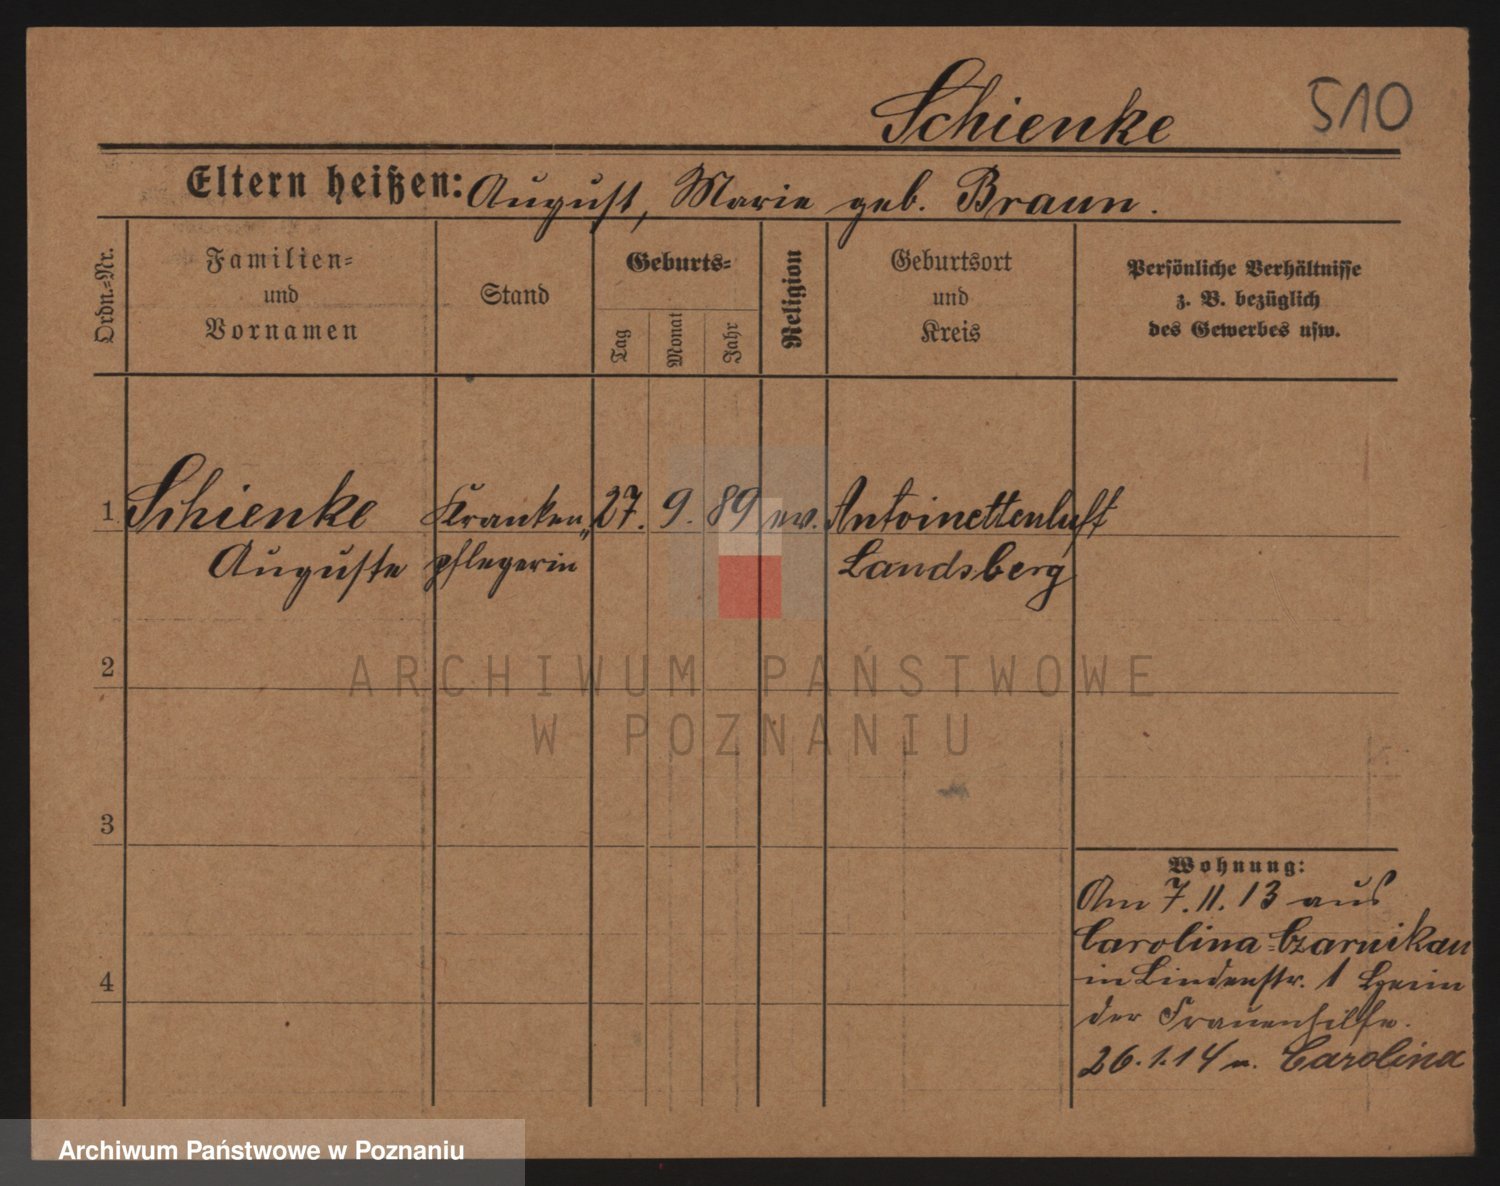 Schienke 510
Eltern heißen: August, Marie geb. Braun.
Ordn.=Nr.
Familien=
und
Vornamen
Stand
Geburts=
Tag
Monat
Jahr
Religion
Geburtsort
und
Kreis
Persönliche Verhältnisse
z. B. bezüglich
des Gewerbes usw.
1 Schienke Kranken„ 27. 9. 89 ev. Antoinettenluft
Auguste pflegerin Landsberg
2
ARCHIWUM PAŃSTWOWE
W POZNANIU
3
Wohnung:
Am 7.11.13 aus
Carolina=Czarnikau
4
in Lindenstr. 1 Heim
der Frauenhilfe.
26.1.14 n. Carolina
Archiwum Państwowe w Poznaniu